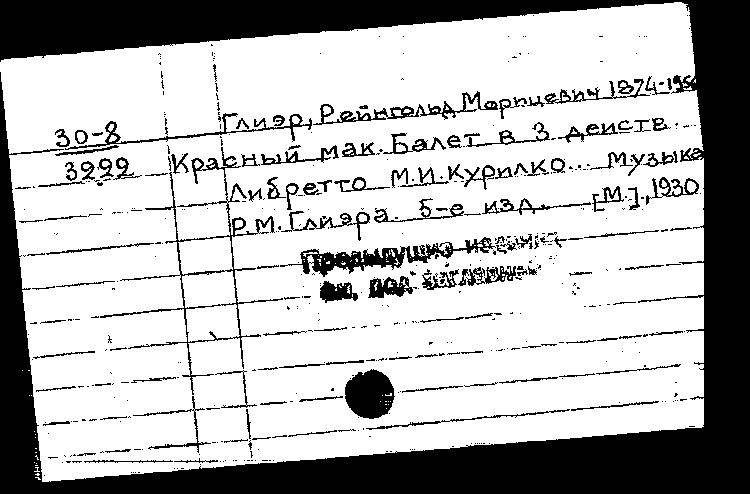 30-8
3222
Глиэр, Рейнгольд Морицевич 1874-1956
Красный мак. Балет в 3 действ.
Либретто М.И.Курилко... Музыка
Р.М.Глиэра. 5-е изд. [М.], 1930
Предыдущие издания
см. под заглавием